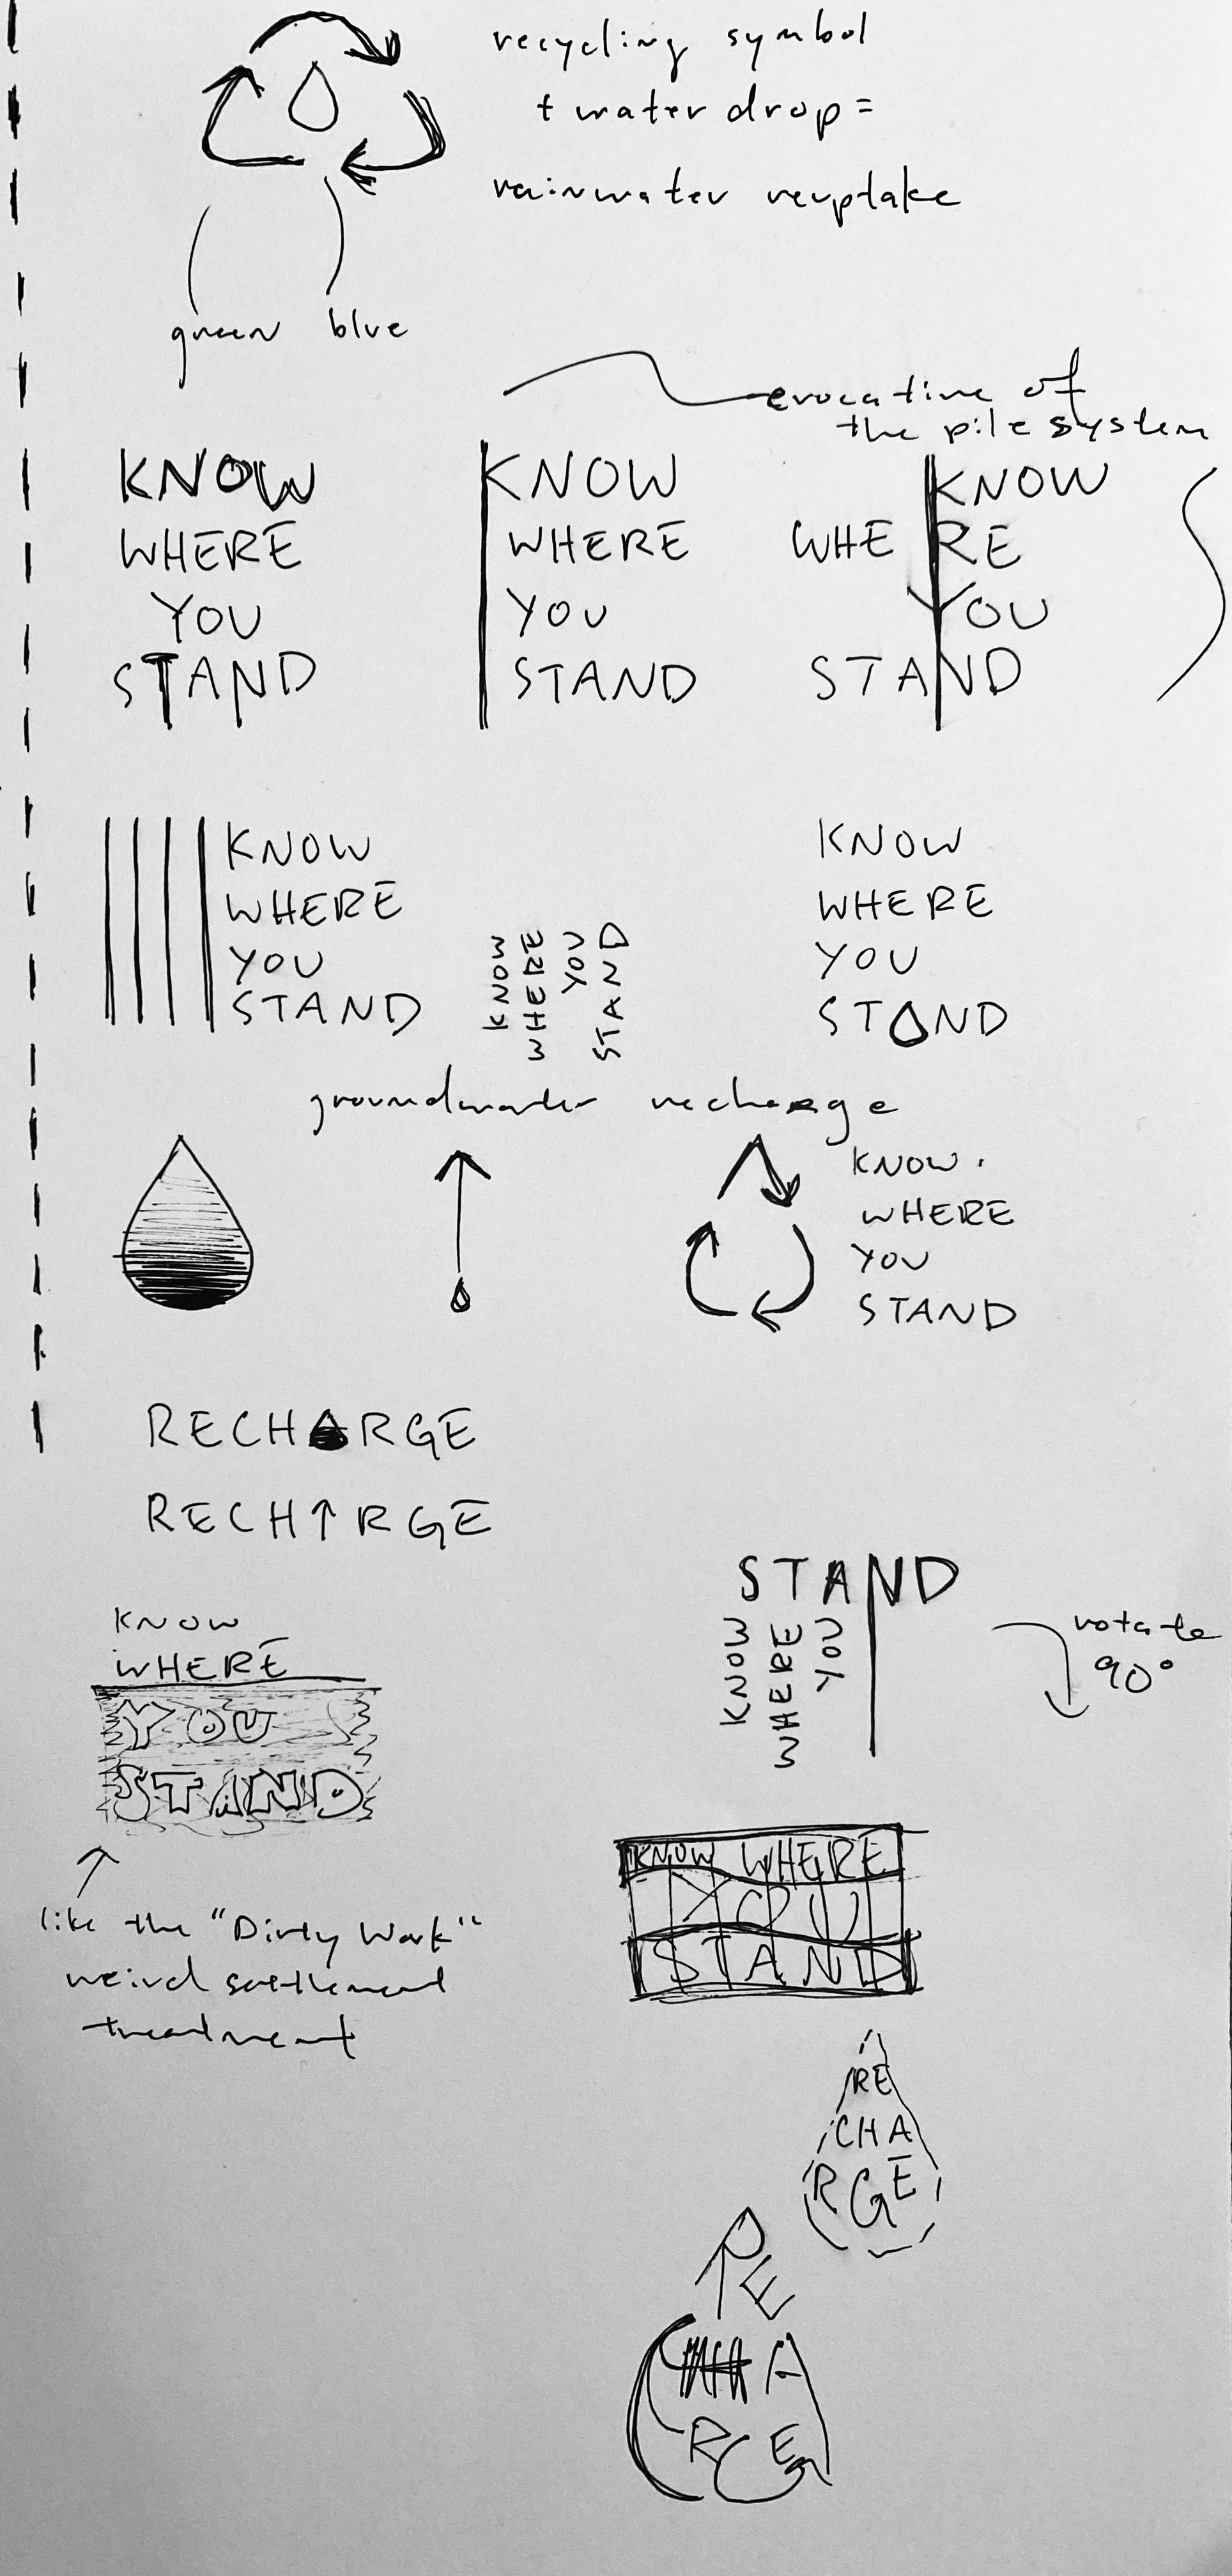 recycling symbol
+ water drop =
rainwater reuptake
green blue
evocative of
the pile system
KNOW
WHERE
YOU
STAND
KNOW
WHERE
YOU
STAND
KNOW
WHERE
YOU
STAND
KNOW
WHERE
YOU
STAND
KNOW
WHERE
YOU
STAND
KNOW
WHERE
YOU
STAND
groundwater recharge
KNOW.
WHERE
YOU
STAND
RECHARGE
RECH↑RGE
KNOW
WHERE
YOU
STAND
like the "Dirty Work"
weird settlement
treatment
STAND
KNOW
WHERE
YOU
rotate
90°
KNOW WHERE
YOU
STAND
RE
CHA
RGE
RE
CHA
RGE